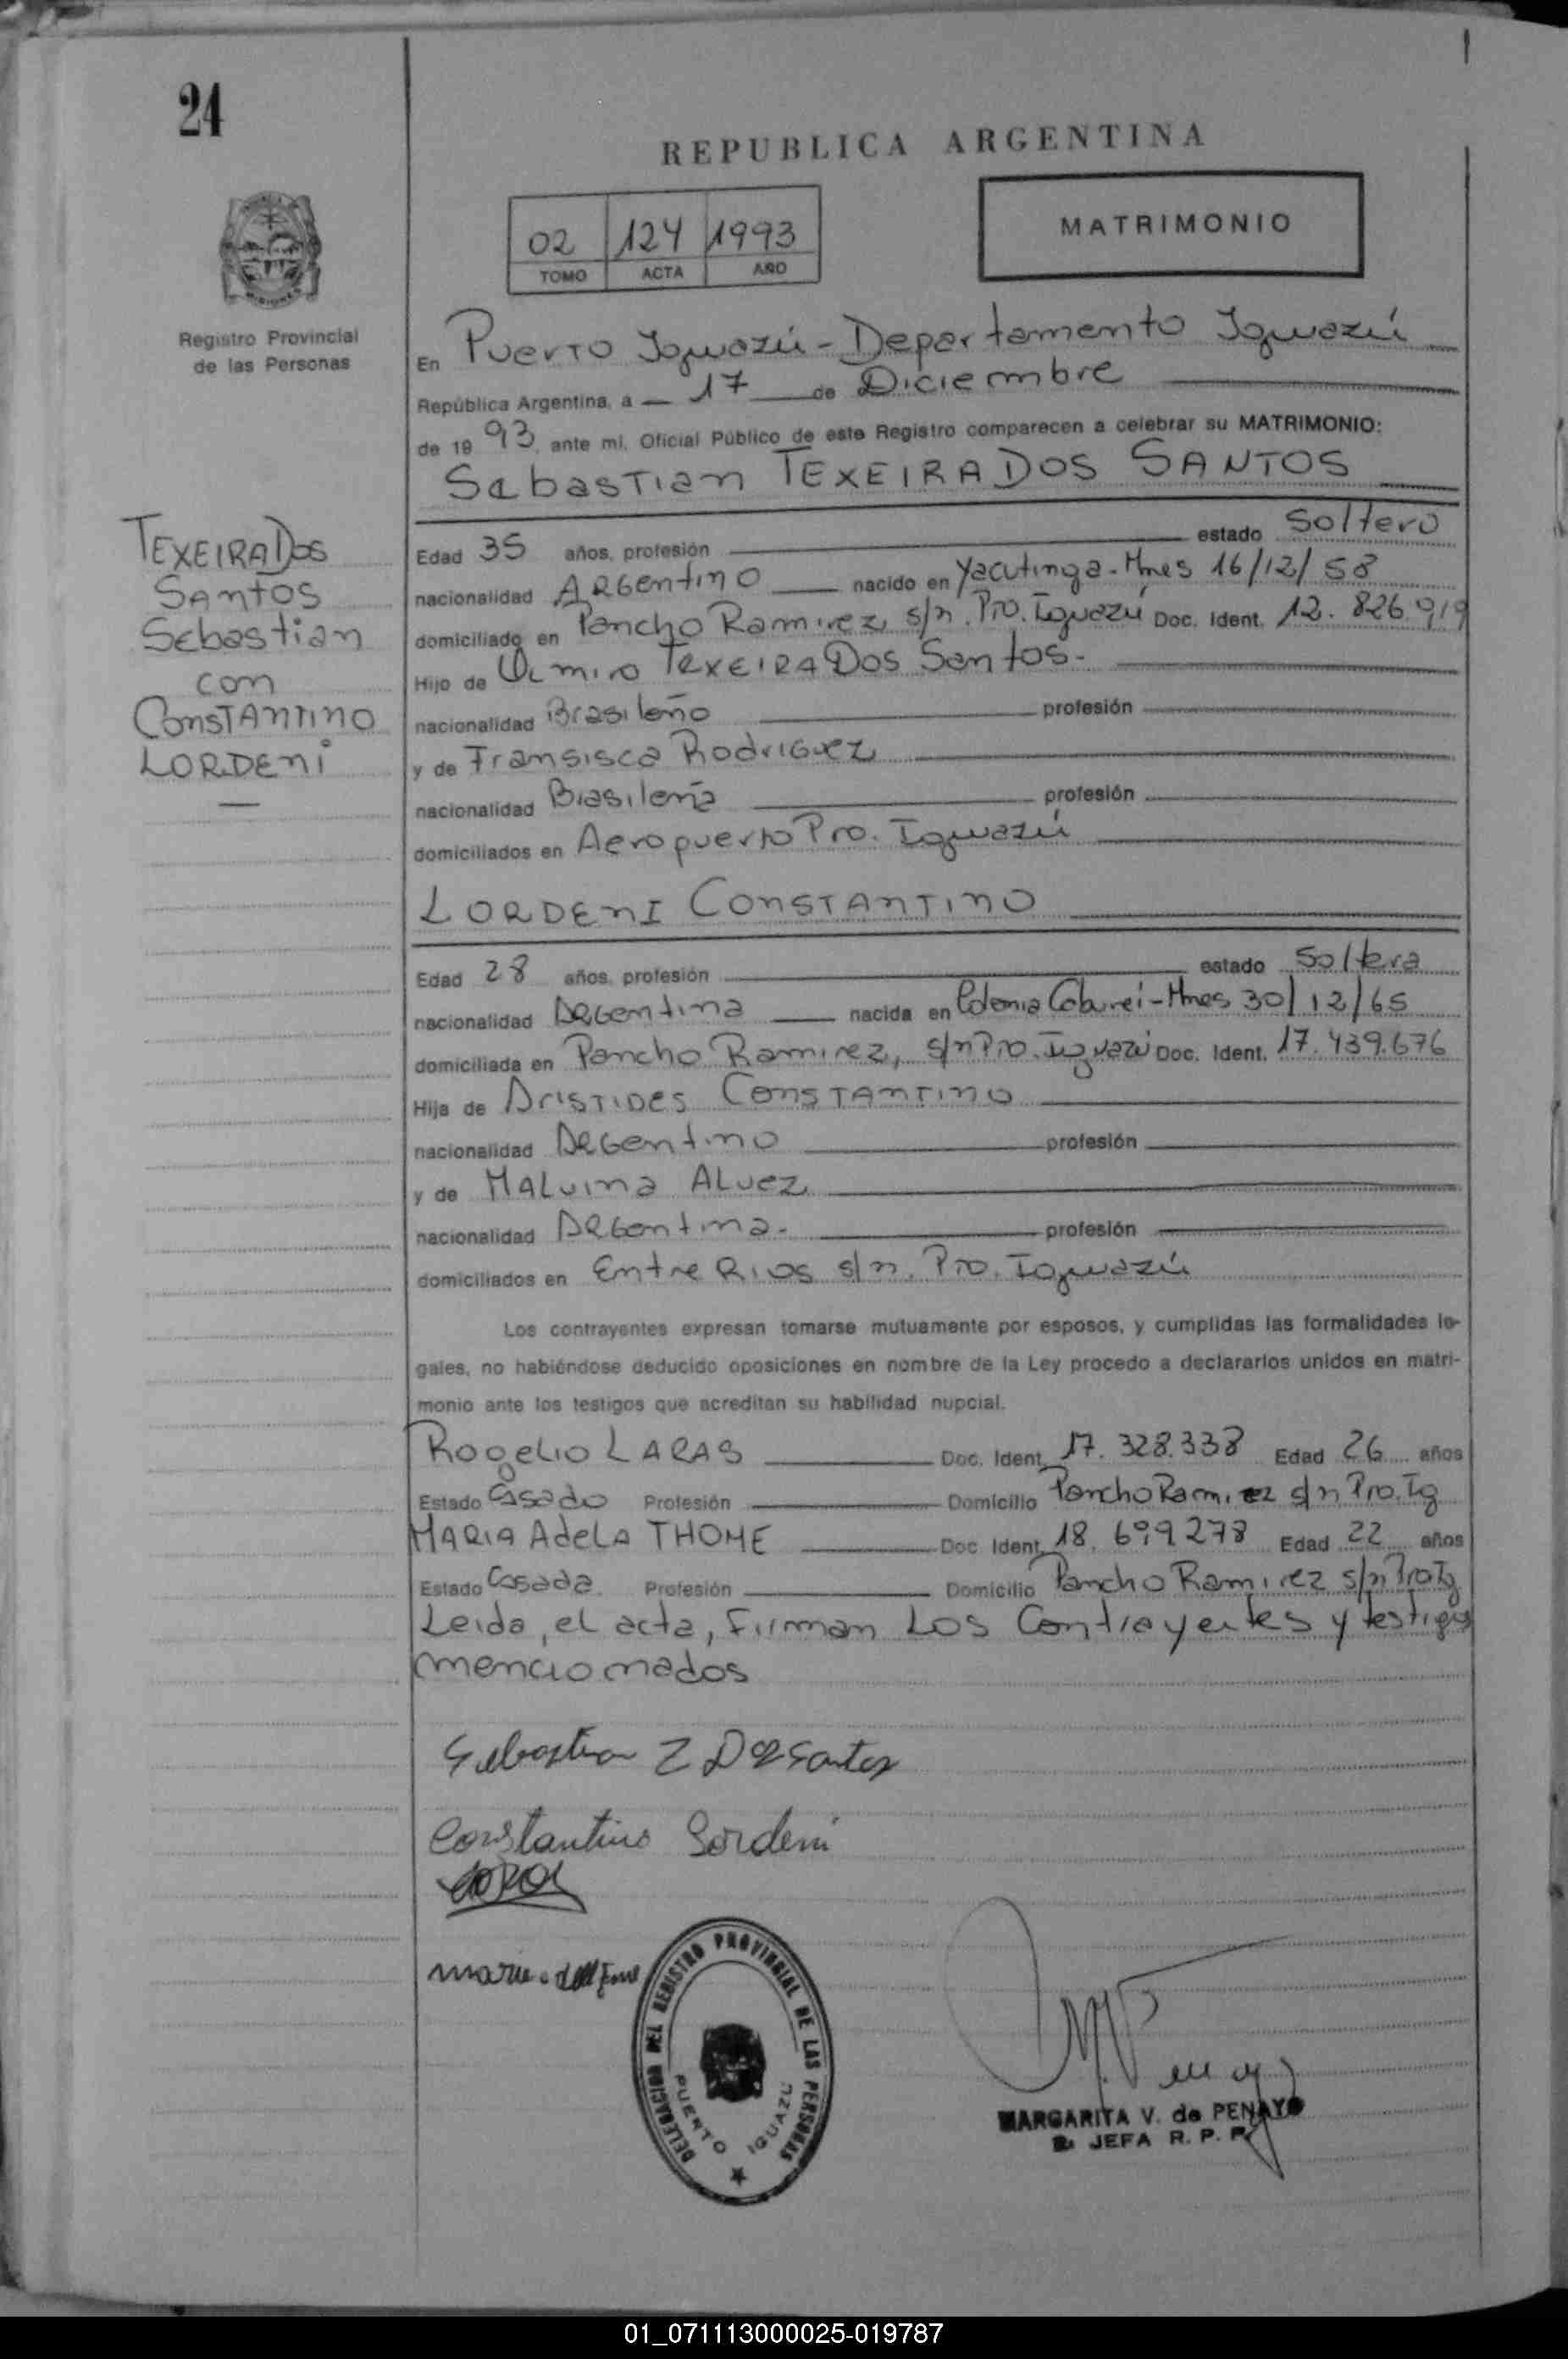 24
REPUBLICA ARGENTINA
02 124 1993
TOMO ACTA AÑO
MATRIMONIO
MISIONES
Registro Provincial
de las Personas
En Puerto Iguazú - Departamento Iguazú
República Argentina, a 17 de Diciembre
de 1993, ante mí, Oficial Público de este Registro comparecen a celebrar su MATRIMONIO:
Sebastian TEXEIRA DOS SANTOS
TEXEIRA Dos
Santos
Sebastian
con
CONSTANTINO
LORDENi
Edad 35 años, profesión estado Soltero
nacionalidad ARGentino nacido en Yacutinga - Mnes 16/12/58
domiciliado en Pancho Ramirez s/n. Pto. Iguazú Doc. Ident. 12.826.919
Hijo de TEXEIRA Dos Santos.-
nacionalidad Brasileño profesión
y de Fransisca Rodriguez
nacionalidad Brasileña profesión
domiciliados en Aeropuerto Pto. Iguazú
LORDENI CONSTANTINO
Edad 28 años, profesión estado Soltera
nacionalidad ARGentina nacida en Colonia - Mnes 30/12/65
domiciliada en Pancho Ramirez, s/n Pto. Iguazú Doc. Ident. 17.439.676
Hija de ARISTIDES CONSTANTINO
nacionalidad ARGentino profesión
y de MALvina ALvez
nacionalidad ARGentina.- profesión
domiciliados en Entre Rios s/n. Pto. Iguazú
Los contrayentes expresan tomarse mutuamente por esposos, y cumplidas las formalidades le-
gales, no habiéndose deducido oposiciones en nombre de la Ley procedo a declararlos unidos en matri-
monio ante los testigos que acreditan su habilidad nupcial.
Rogelio LARAS Doc. Ident. 17.328.338 Edad 26 años
Estado Casado Profesión Domicilio Pancho Ramirez s/n Pto. Ig
MARIA AdeLA THOME Doc. Ident. 18.699.278 Edad 22 años
Estado Casada. Profesión Domicilio Pancho Ramirez s/n Pto Ig
Leida, el acta, Firman Los Contrayentes y testigos
mencionados
Sebastian Dos Santos
Constantino Lordeni
DELEGACION DEL REGISTRO PROVINCIAL DE LAS PERSONAS
PUERTO IGUAZU
MARGARITA V. de PENAYO
JEFA R. P. P.
01_071113000025-019787